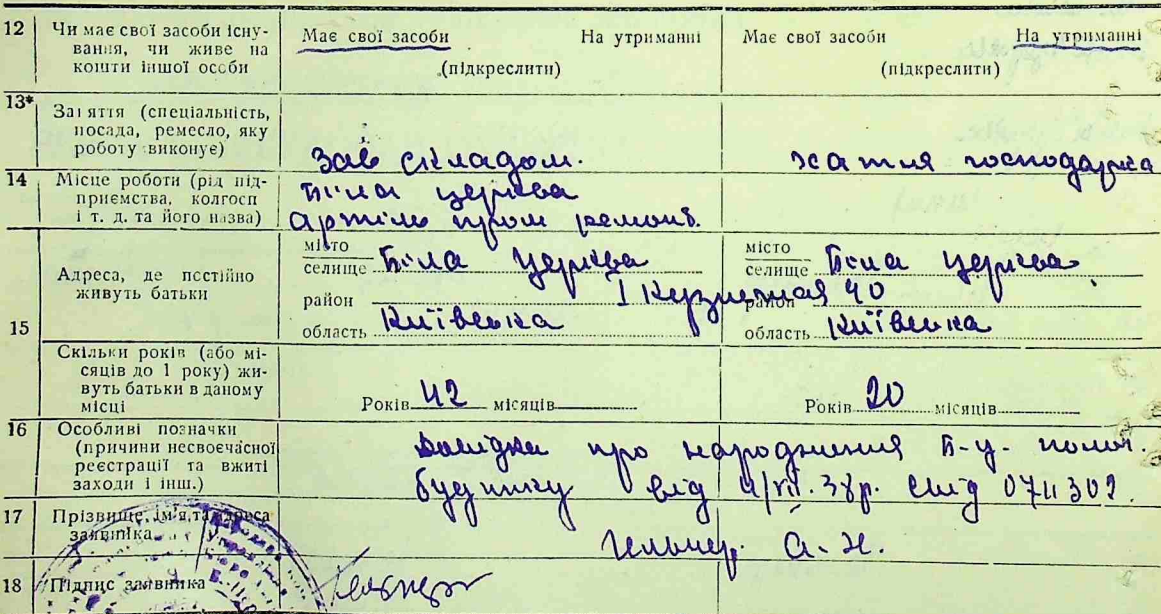 12 Чи має свої засоби існу-
вання, чи живе на
кошти іншої особи
Має свої засоби На утриманні
(підкреслити)
Має свої засоби На утриманні
(підкреслити)
13* Заняття (спеціальність,
посада, ремесло, яку
роботу виконує)
зав складом.
хатня господарка
14 Місце роботи (рід під-
приємства, колгосп
і т. д. та його назва)
Біла церква
артіль пром ремонт.
15 Адреса, де постійно
живуть батьки
місто
селище Біла церква
район
область Київська
І Кузнечная 40
місто
селище Біла церква
район
область Київська
Скільки років (або мі-
сяців до 1 року) жи-
вуть батьки в даному
місці
Років 42 місяців
Років 20 місяців
16 Особливі позначки
(причини несвоєчасної
реєстрації та вжиті
заходи і інш.)
довідка про народження Б-ц. полог.
будинку від 4/VII.38р.
17 Прізвище, ім'я та адреса
заявника
А-Н.
18 Підпис заявника